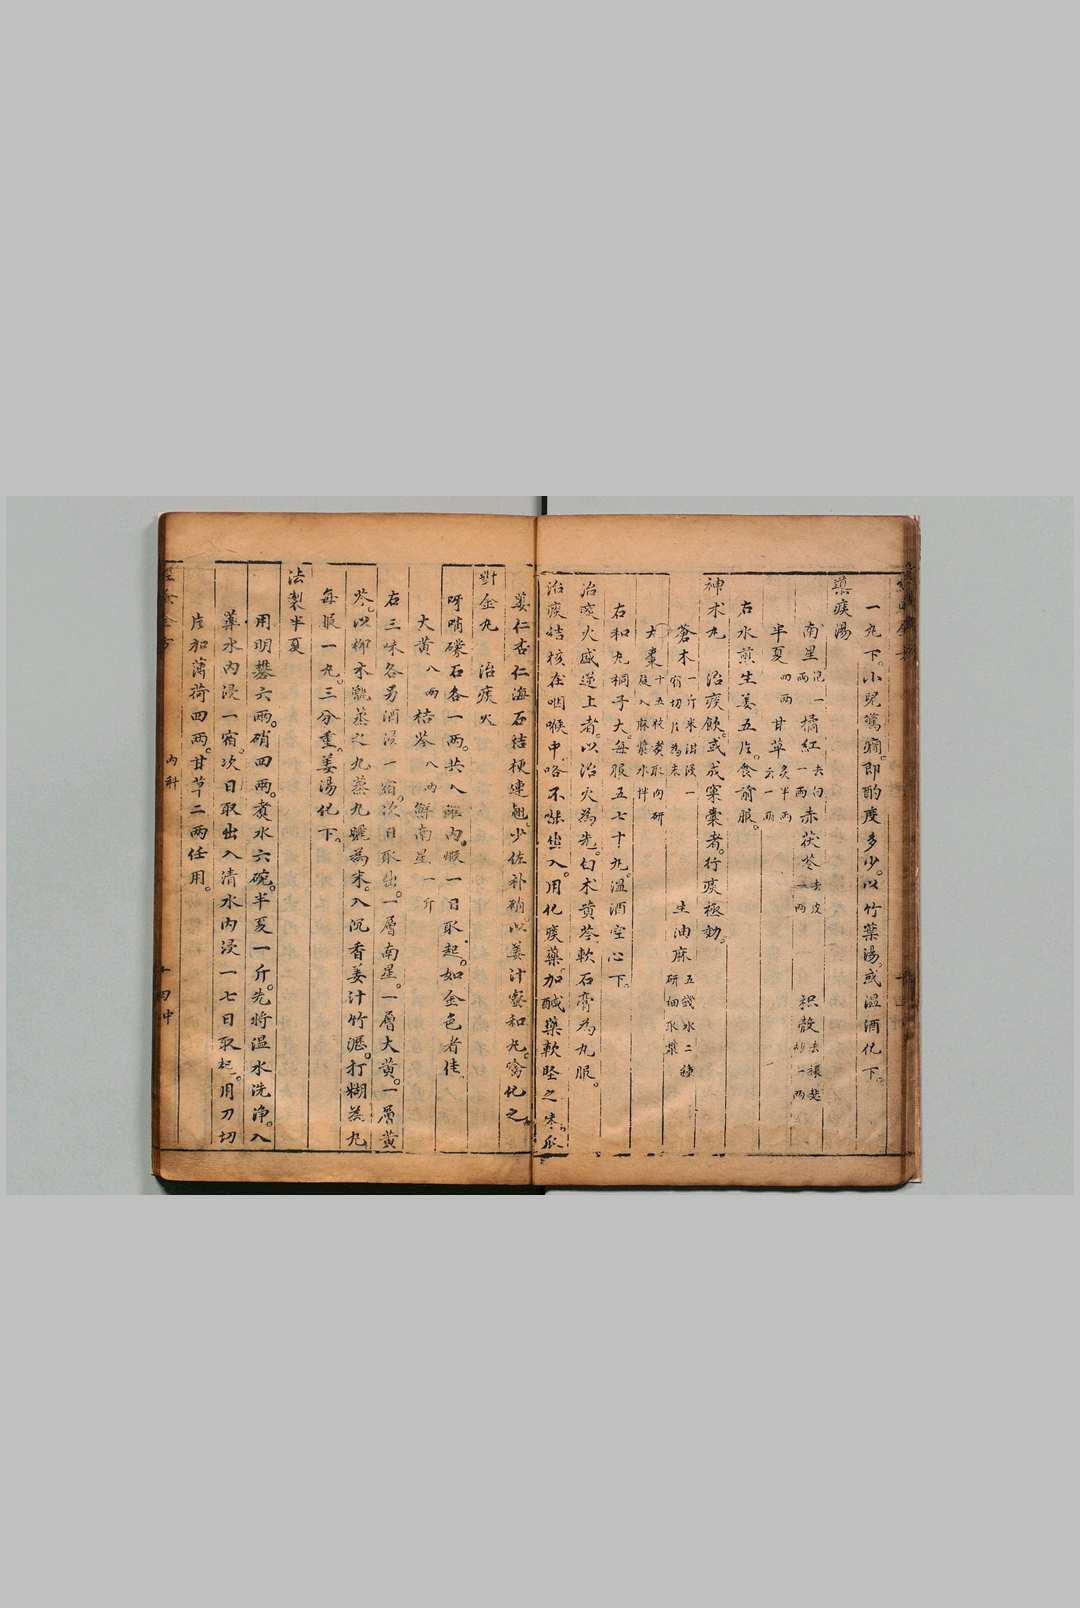 一丸下。小兒驚癇。即酌度多少。以竹葉湯。或溫酒化下。
藥痰湯
南星泡一兩 橘紅去白一兩 赤茯苓去皮一兩 枳殼去穰麩炒一兩
半夏四兩 甘草炙半兩
右水煎生姜五片。食前服。
神术丸 治痰飲。或成窠囊者。行痰極効。
蒼术一斤米泔浸一宿切片為末 生油麻五錢水二鍾研細取漿
大棗十五枚煮取肉研
右和丸桐子大。每服五七十丸。溫酒空心下。
治痰火盛逆上者。以治火為先。白术黃芩軟石膏為丸服。
治痰結核在咽喉中。咯不出入。用化痰藥。加醎藥軟堅之味。瓜
蔞仁杏仁海石桔梗連翹。少佐朴硝以姜汁蜜和丸。噙化之。
對金丸 治痰火
硝礞石各一兩。共入確內。煅一日取起。如金色者佳。
大黃八兩 枯芩八兩 鮮南星一斤
右三味各另酒浸一宿。次日取出。一層南星。一層大黃。一層黃
芩。以柳木甑蒸之九蒸九曬為末。入沉香姜汁竹瀝。打糊為丸
每服一丸。三分重。姜湯化下。
法製半夏
用明礬六兩。硝四兩。煮水六碗。半夏一斤。先將溫水洗淨。入
藥水內浸一宿。次日取出入清水內浸一七日取起。用刀切
片加薄荷四兩。甘草二兩任用。
內科